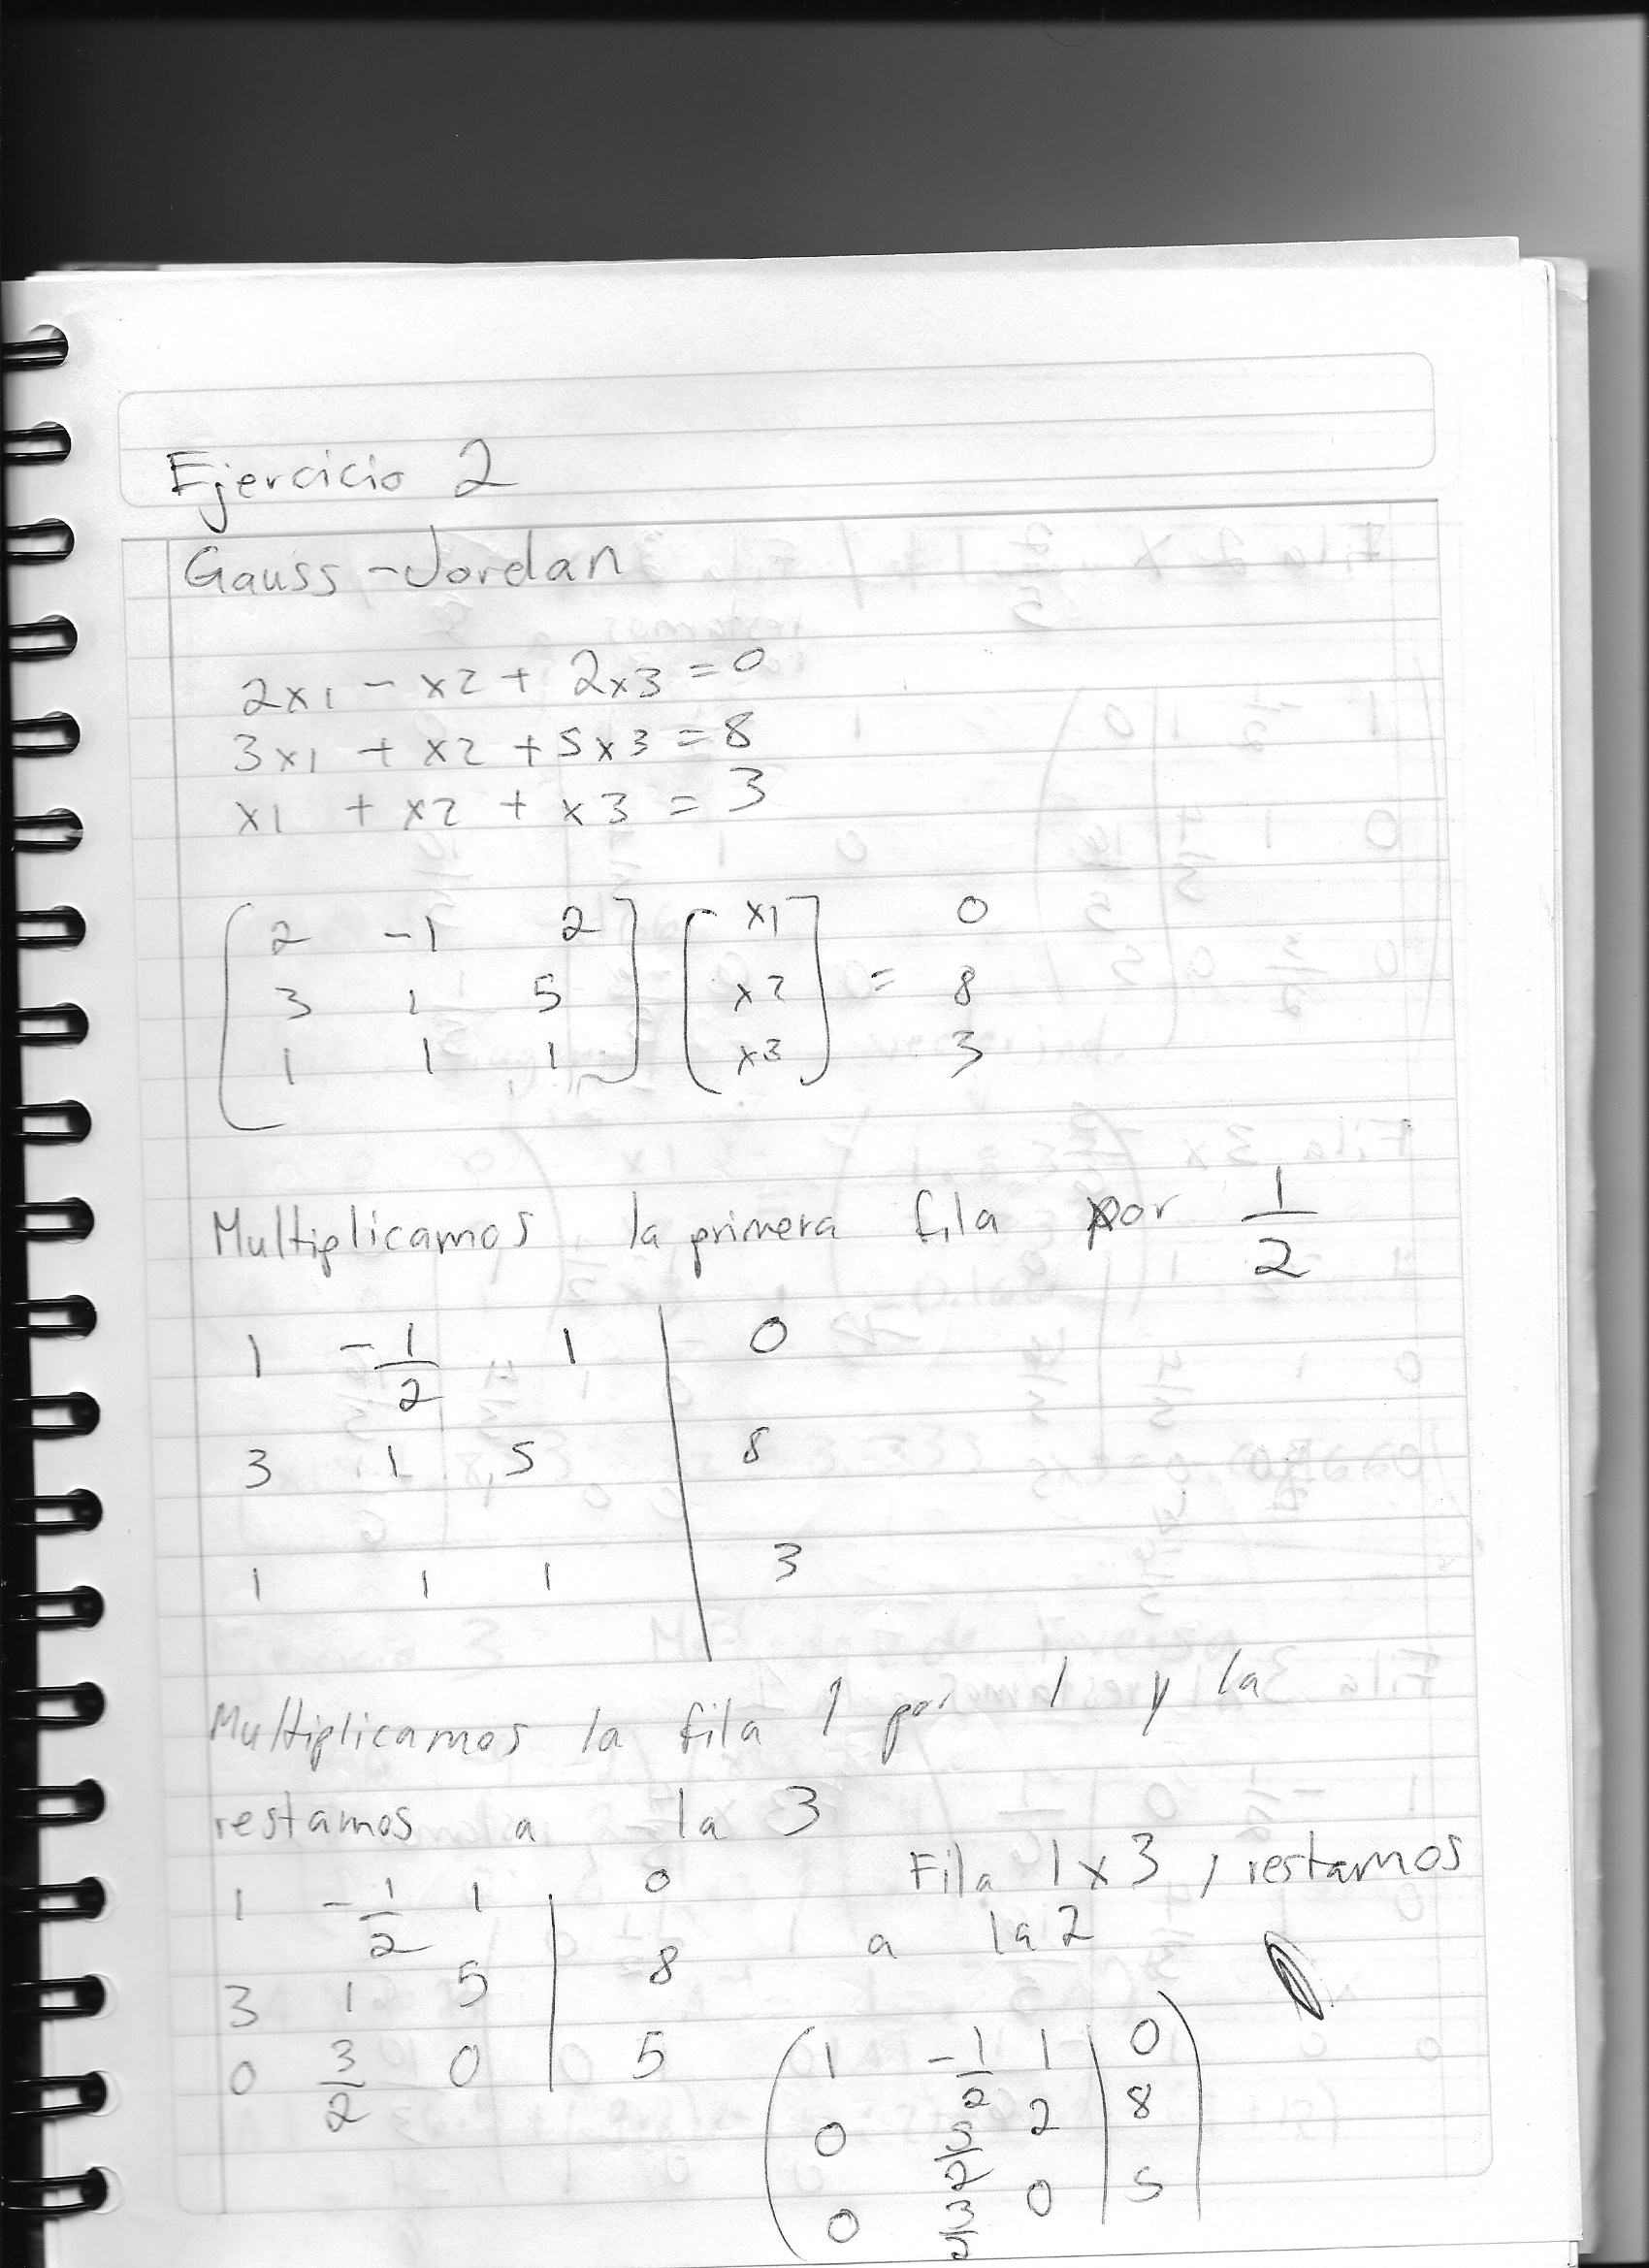 Ejercicio 2
Gauss-Jordan
2x1 - x2 + 2x3 = 0
3x1 + x2 + 5x3 = 8
x1 + x2 + x3 = 3
2 -1 2 x1 0
3 1 5 x2 = 8
1 1 1 x3 3
Multiplicamos la primera fila por 1/2
1 -1/2 1 | 0
3 1 5 | 8
1 1 1 | 3
Multiplicamos la fila 1 por 1 y la
restamos a la 3
1 -1/2 1 | 0
3 1 5 | 8
0 3/2 0 | 5
Fila 1x3, restamos
a la 2
1 -1/2 1 | 0
0 5/2 2 | 8
0 3/2 0 | 5